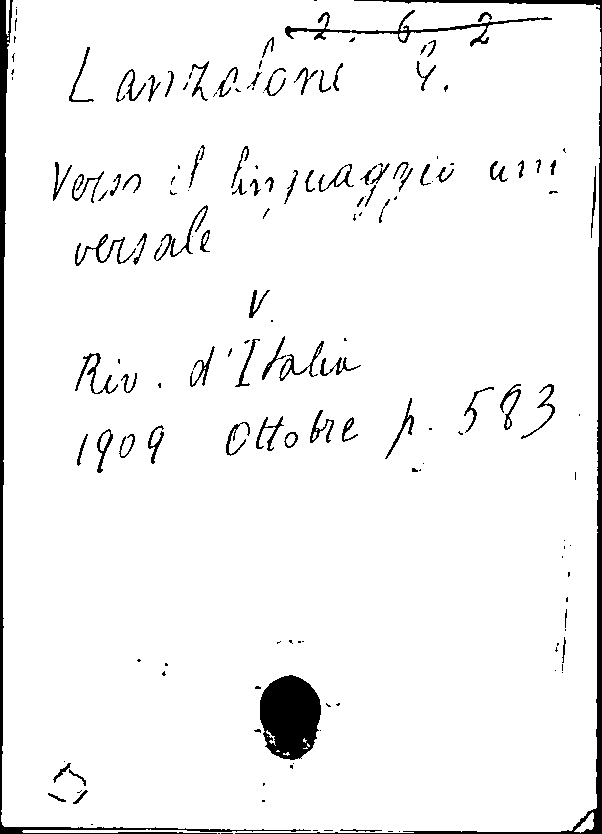 2. 6 2
Lanzalone G.
Verso il linguaggio uni
versale
V.
Riv. d'Italia
1909 Ottobre p. 583